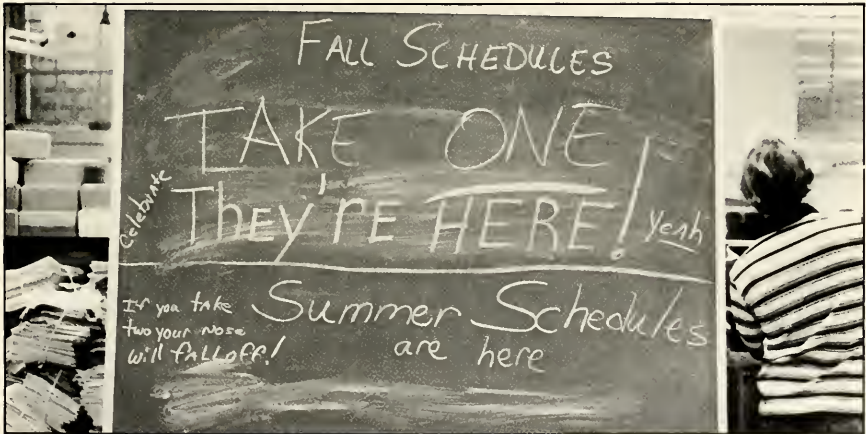 FALL SCHEDULES
TAKE ONE
Celebrate
They'rE HERE!
Yeah
If you take
two your nose
will fALL off!
Summer Schedules
are here